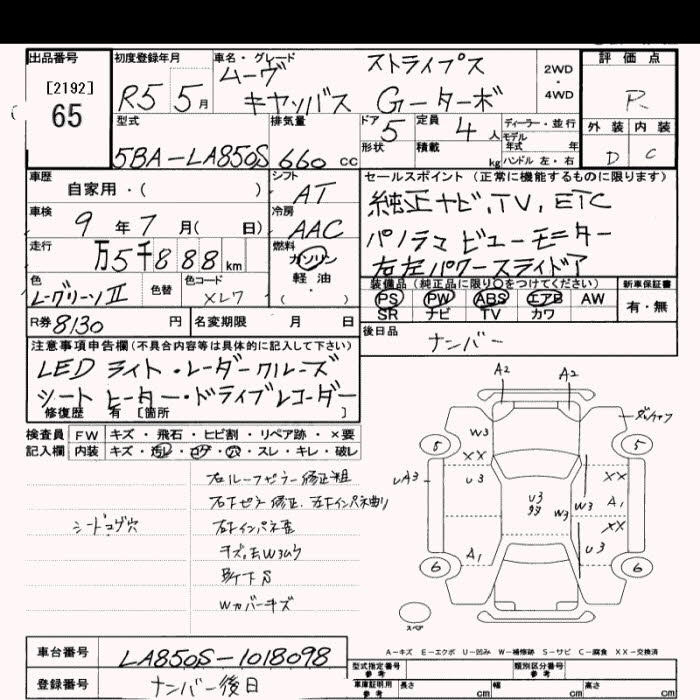 出品番号
[2192]
65
初度登録年月
R5 5月
車名・グレード
ムーヴ ストライプス
キャンバス Gーターボ
2WD
・
4WD
評価点
R
外装 内装
D C
型式
5BA-LA850S
排気量
660 cc
ドア
5
形状
定員
4 人
積載
kg
ディーラー・並行
モデル
年式 年
ハンドル 左・右
車歴
自家用・( )
シフト
AT
車検
9 年 7 月( 日)
冷房
AAC
走行
万5千888km
燃料
ガソリン
軽油
( ・ )
色
色替
色コード
XL7
R券 8130 円
名変期限 月 日
セールスポイント (正常に機能するものに限ります)
純正ナビ、TV、ETC
パノラマビューモニター
右左パワースライドドア
装備品 (純正品に限り○をつけてください)
PS PW ABS エアB AW
SR ナビ TV カワ
新車保証書
有・無
後日品
ナンバー
注意事項申告欄(不具合内容等は具体的に記入して下さい)
LEDライト・レーダークルーズ
シートヒーター・ドライブレコーダー
修復歴 有 [箇所 ]
検査員
記入欄
FW キズ・飛石・ヒビ割・リペア跡・×要
内装 キズ・汚レ・コゲ・穴・スレ・キレ・破レ
右ルーフピラー修正粗
シートコゲ穴
キズ、凹W3ムラ
Wカバーキズ
A2 A2
W3
XX
U3
UA3
A1
U3
W3
W3
XX
A1
XX
U3
5 5
6 6
スペア
A-キズ E-エクボ U-凹み W-補修跡 S-サビ C-腐食 XX-交換済
車台番号
LA850S-1018098
登録番号
ナンバー後日
型式指定番号
参考
類別区分番号
参考
車庫証明用
参考
長さ cm 幅 cm 高さ cm